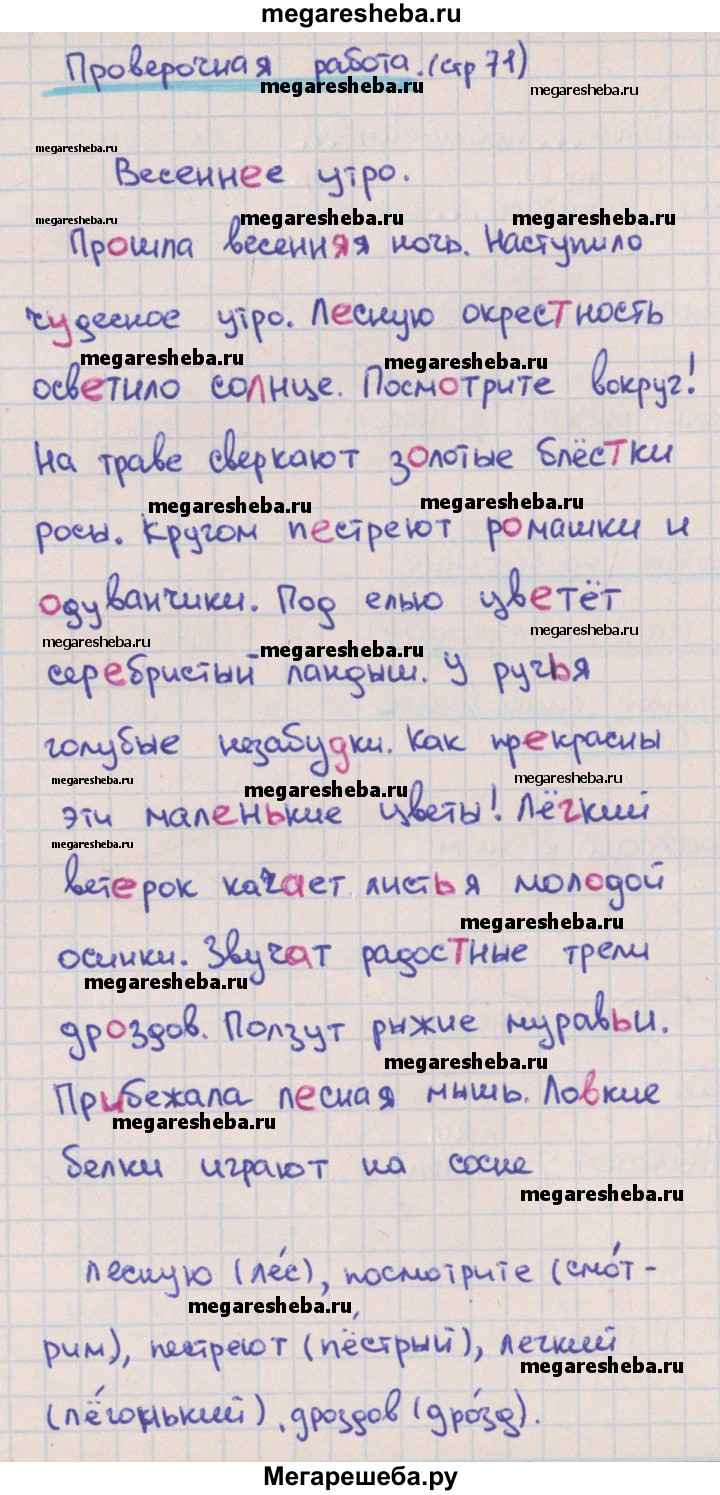 megaresheba.ru
Проверочная работа. (стр 71)
megaresheba.ru megaresheba.ru
megaresheba.ru
Весеннее утро.
megaresheba.ru megaresheba.ru megaresheba.ru
Прошла весенняя ночь. Наступило
чудесное утро. Лесную окрестность
megaresheba.ru megaresheba.ru
осветило солнце. Посмотрите вокруг!
На траве сверкают золотые блёстки
megaresheba.ru megaresheba.ru
росы. Кругом пестреют ромашки и
одуванчики. Под елью цветёт
megaresheba.ru megaresheba.ru megaresheba.ru
серебристый ландыш. У ручья
голубые незабудки. Как прекрасны
megaresheba.ru megaresheba.ru megaresheba.ru
эти маленькие цветы! Лёгкий
megaresheba.ru
ветерок качает листья молодой
megaresheba.ru
осинки. Звучат радостные трели
megaresheba.ru
дроздов. Ползут рыжие муравьи.
megaresheba.ru
Прибежала лесная мышь. Ловкие
megaresheba.ru
белки играют на сосне
megaresheba.ru
лесную (ле́с), посмотрите (смо́т-
megaresheba.ru
рим), пестреют (пёстрый), легкий
megaresheba.ru
(лёгонький), дроздов (дро́зд).
Мегарешеба.ру